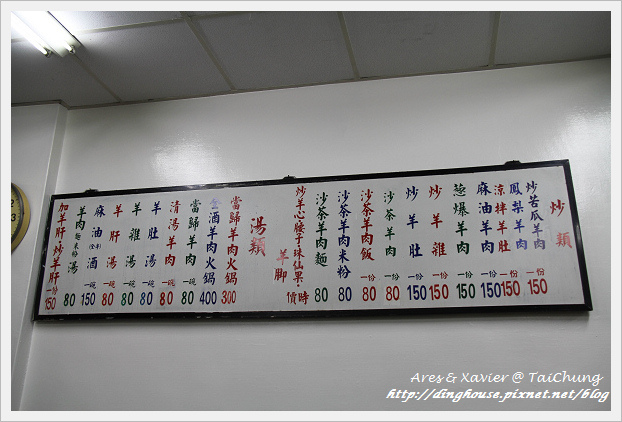 炒類
炒苦瓜羊肉 一份 150
鳳梨羊肉 一份 150
涼拌羊肚 一份 150
麻油羊肉 一份 150
葱爆羊肉 一份 150
炒羊雜 一份 150
炒羊肚 一份 150
沙茶羊肉 一份 80
沙茶羊肉飯 一份 80
沙茶羊肉米粉 80
沙茶羊肉麵 80
炒羊心腰子珠仙果 時價
羊脚
湯類
當歸羊肉火鍋 300
全酒羊肉火鍋 400
當歸羊肉 一碗 80
清湯羊肉 一碗 80
羊肚湯 一碗 80
羊雜湯 一碗 80
羊肝湯 一碗 80
麻油 酒 一碗 150
羊肉麵米粉湯 80
加羊肝炒羊肝 一份 150
Ares & Xavier @ TaiChung
http://dinghouse.pixnet.net/blog
3